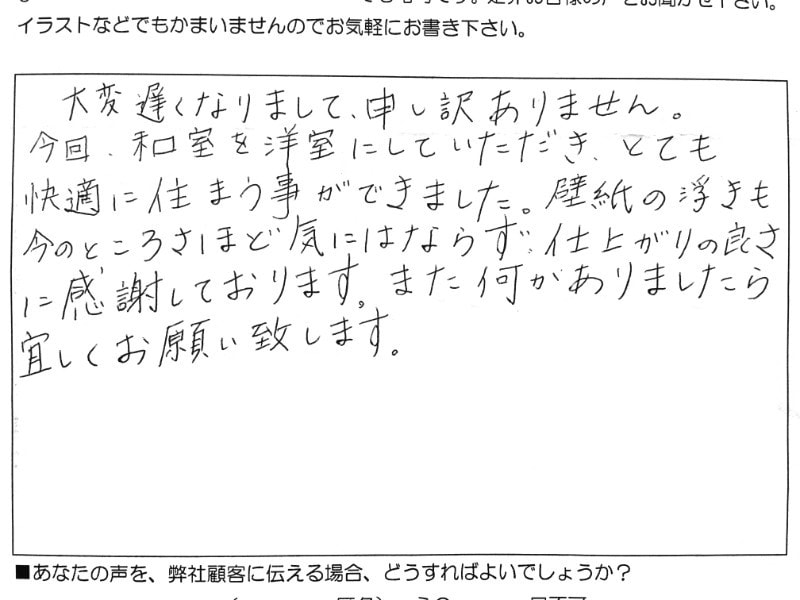 イラストなどでもかまいませんのでお気軽にお書き下さい。
大変遅くなりまして、申し訳ありません。
今回、和室を洋室にしていただき、とても
快適に住まう事ができました。壁紙の浮きも
今のところさほど気にはならず、仕上がりの良さ
に感謝しております。また何かありましたら
宜しくお願い致します。
■あなたの声を、弊社顧客に伝える場合、どうすればよいでしょうか？